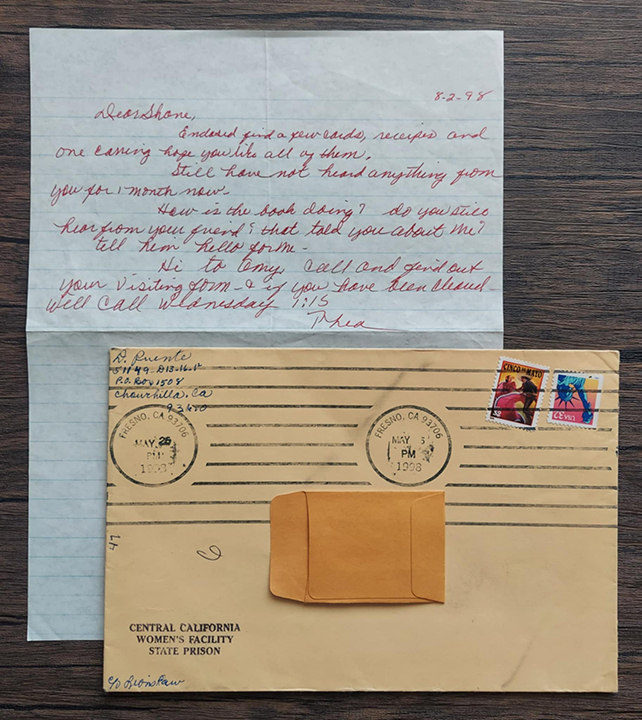 8-2-98
Dear Shane,
Enclosed find a few cards, receipes and
one earring hope you like all of them.
Still have not heard anything from
you for 1 month now.
How is the book doing? do you still
hear from your friend? that told you about me?
tell him hello for me -
Hi to Amy. Call and find out
your visiting form - & if you have been cleared
will call Wednesday 1:15
D. Puente
D13-16-1
P.O. Box 1508
Chowchilla, Ca
FRESNO, CA 93706
MAY 26
PM
1998
FRESNO, CA 93706
MAY
PM
1998
CINCO DE MAYO
32
47
CENTRAL CALIFORNIA
WOMEN'S FACILITY
STATE PRISON
c/o